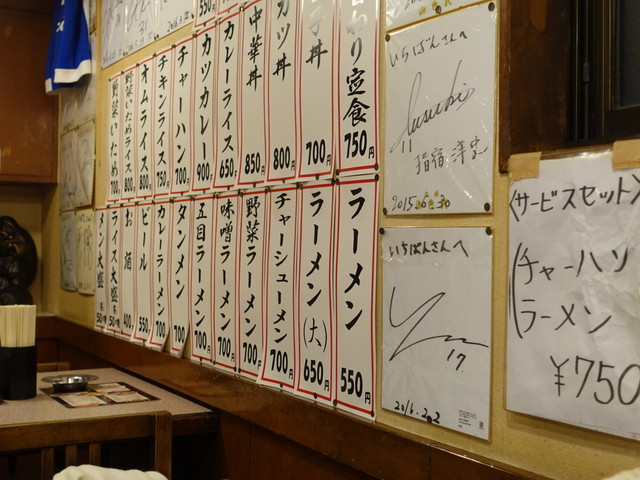 わり定食 750円
丼 700円
カツ丼 800円
中華丼 850円
カレーライス 650円
カツカレー 900円
チャーハン 700
チキンライス 750
オムライス 800
野菜いためライス 800
野菜いため 700
ラーメン 550円
ラーメン(大) 650円
チャーシューメン 700円
野菜ラーメン 700円
味噌ラーメン 700
五目ラーメン 700
タンメン 700
カレーラーメン 700
ビール 550
お酒 400
ライス大盛
メン大盛
550円
いちばんさんへ
11
2015.6.30
いちばんさんへ
17.
2016.2.2
〈サービスセット〉
チャーハン
ラーメン
¥750